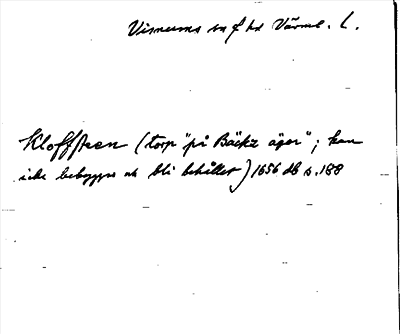 Visnums sn o hd Värml. L.
Kloffsteen (torp "på Bäckz ägor"; kan
icke bebygges och bli behållet) 1656 db s. 188